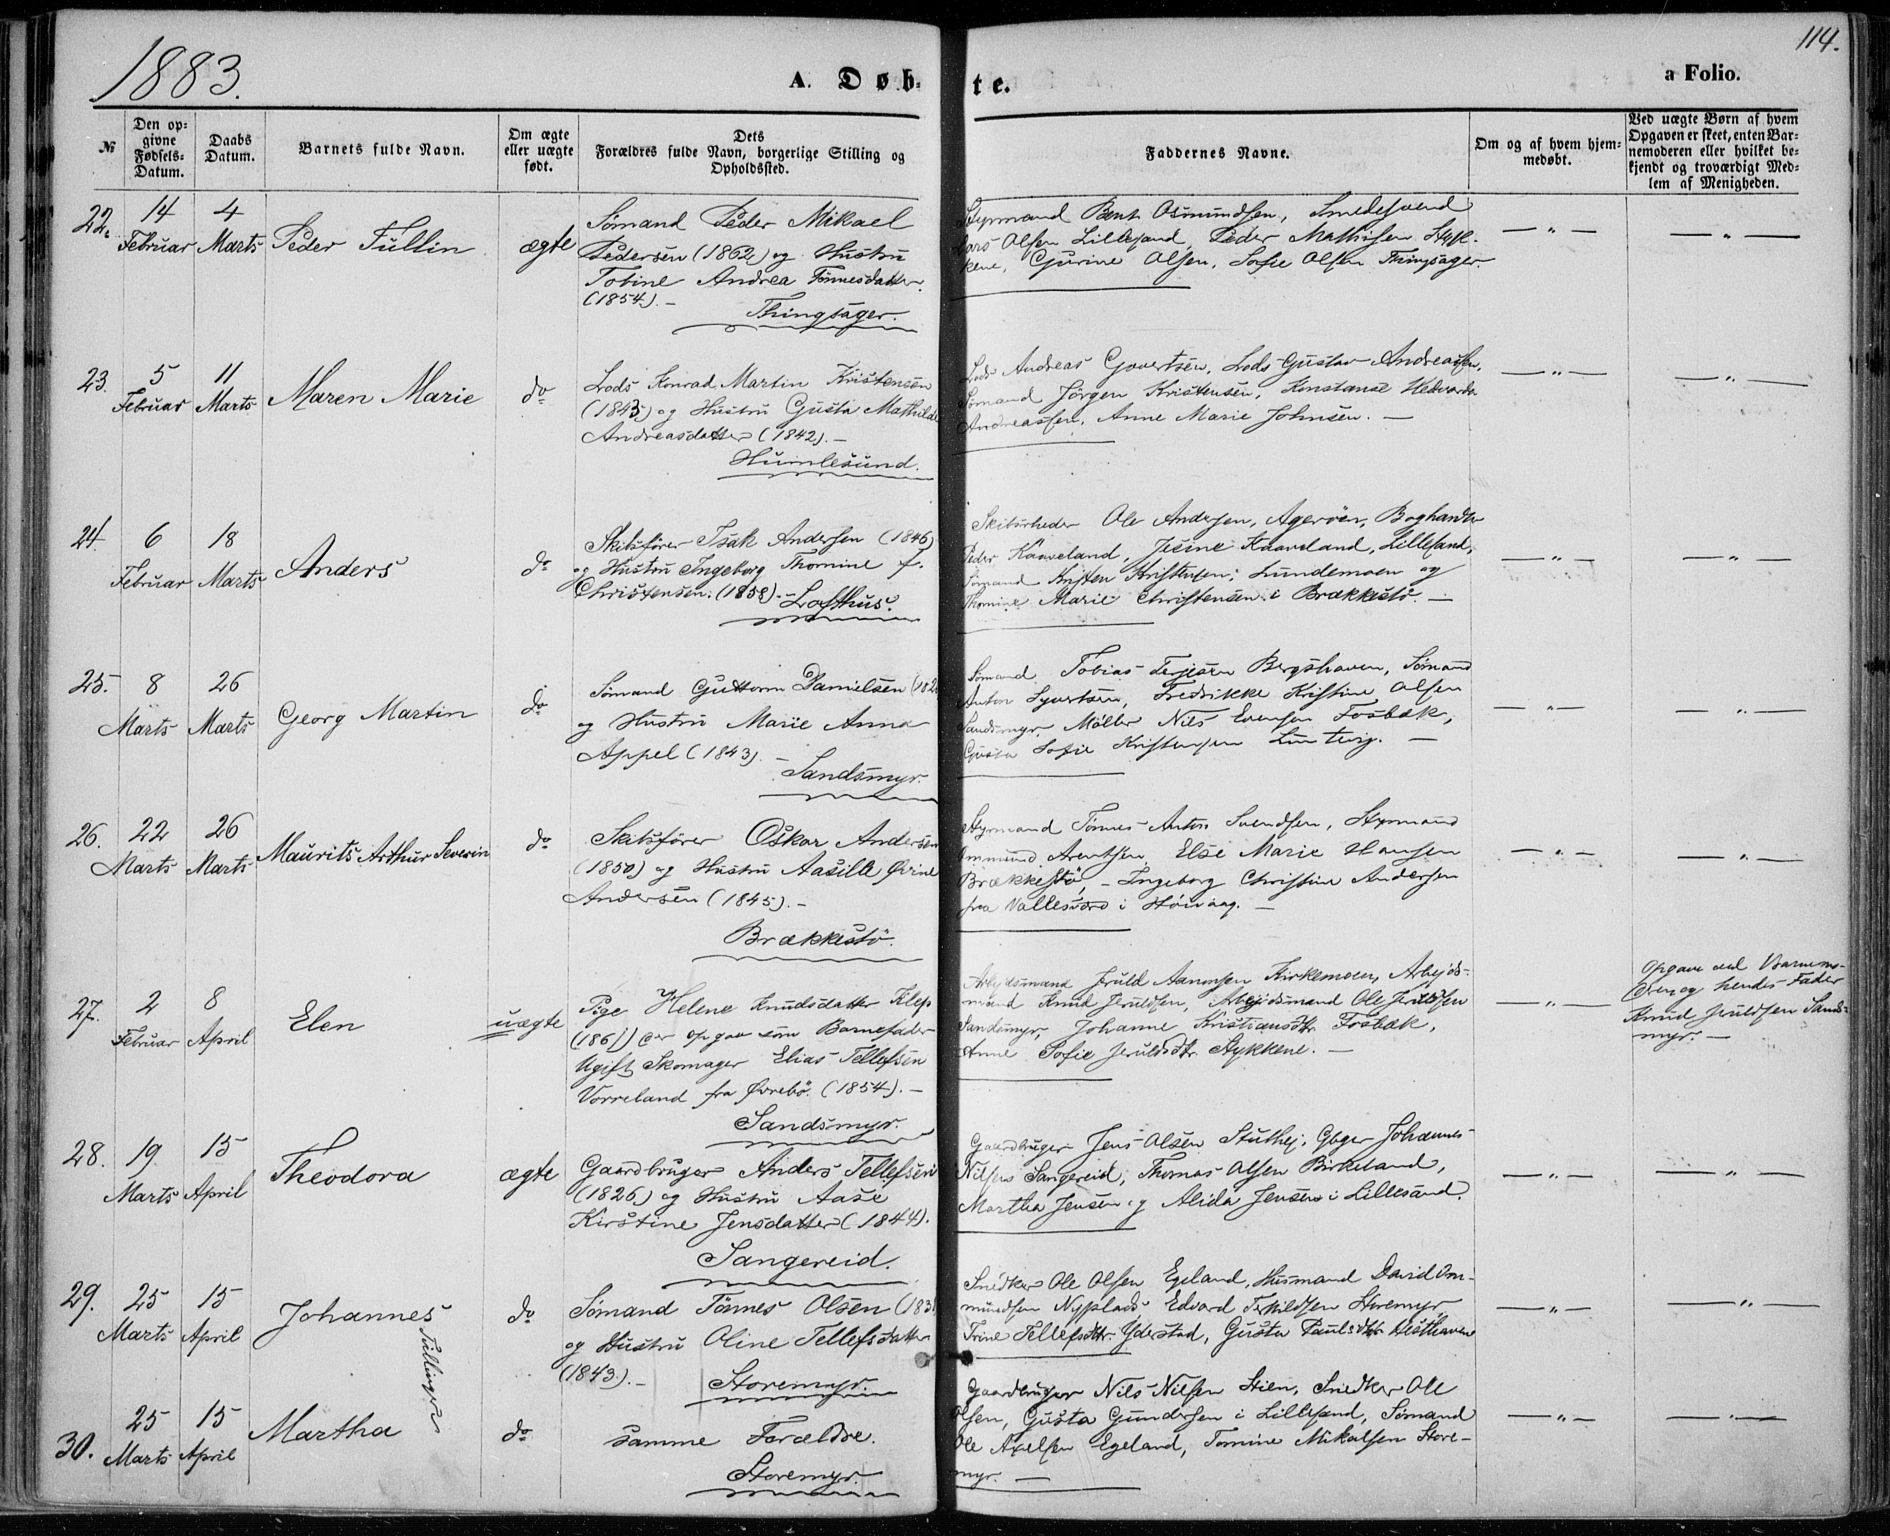 1883.
A. Døbte.
114.
a Folio.
№
Den opgivne Fødsels-Datum.
Daabs Datum.
Barnets fulde Navn.
Om ægte eller uægte født.
Dets Forældres fulde Navn, borgerlige Stilling og Opholdssted.
Faddernes Navne.
Om og af hvem hjemmedøbt.
Ved uægte Børn af hvem Opgaven er skeet, enten Barnemoderen eller hvilket bekjendt og troværdigt Medlem af Menigheden.
22. 14 Februar 4 Marts Peder Tullin ægte
Sømand Peder Mikael
Pedersen (1862) og Hustru
Tobine Andrea Tønnesdatter
(1854). –
Thingsager.
Styrmand Bent Osmundsen, Smedesvend
Lars Olsen Lillesand, Peder Mathisen Stykkene,
Gurine Olsen, Sofie Olsen Thingsager.
— „ — — „ —
23. 5 Februar 11 Marts Maren Marie do
Lods Konrad Martin Kristensen
(1843) og Hustru Gusta Mathilde
Andreasdatter (1842). –
Humlesund.
Lods Andreas Govertsen, Lods Gustav Andreassen,
Sømand Jörgen Kristensen, Konstanse Hedvarda
Andreassen, Anne Marie Johnsen. –
— „ — — „ —
24. 6 Februar 18 Marts Anders do
Skibsfører Isak Andersen (1846)
og Hustru Ingeborg Thomine f.
Christensen. (1858). –
Lofthus.
Skibsrheder Ole Andersen, Agerøen, Boghandler
Peder Kaaveland, Jesine Kaaveland, Lillesand,
Sømand Kristen Kristensen, Lundemoen og
Thomine Marie Christensen i Brækkestø. –
— „ — — „ —
25. 8 Marts 26 Marts Georg Martin do
Sømand Guttorm Danielsen (182
og Hustru Marie Anna
Appel (1843). –
Sandsmyr.
Sømand Tobias Terjesen Bergshaven, Sømand
Anton Syvertsen, Fredrikke Kristine Olsen
Sandsmyr, Møller Nils Evensen Fosbæk,
Gusta Sofie Kristensen Luntevig. –
— „ — — „ —
26. 22 Marts 26 Marts Maurits Arthur Severin do
Skibsfører Oskar Andersen
(1850) og Hustru Aasille Øvine
Andersen (1845). –
Brækkestö.
Styrmand Tønnes Anton Svendsen, Styrmand
Ommund Arentsen, Else Marie Hansen
Brækkestö, – Ingeborg Christine Andersen
fra Vallesværd i Høivaag. –
— „ — — „ —
27. 2 Februar 8 April Elen uægte
Pige Helene Knudsdatter Klep
(1861) der opgav som Barnefader
Ugift Skomager Elias Tellefsen
Vorreland fra Øvrebö. (1854). –
Sandsmyr.
Arbeidsmand Jeruld Aanonsen Kirkemoen, Arbejdsmand
Knud Jeruldsen, Arbejdsmand Ole Jeruldsen
Sandsmyr, Johanne Kristiansdtr. Fosbæk,
Anne Sofie Jeruldsdtr. Stykkene. –
— „ —
Opgave ved Barnemoderen
og hendes Fader
Knud Jeruldsen Sandsmyr. –
28. 19 Marts 15 April Theodora ægte
Gaardbruger Anders Tellefsen
(1826) og Hustru Aase
Kirstine Jensdatter (1844).
Sangereid.
Gaardbruger Jens Olsen Stuthej, Gbger Johannes
Nilsen Sangereid, Thomas Olsen Birkeland,
Martha Jensen og Alida Jensen i Lillesand.
— „ — — „ —
29. 25 Marts 15 April Johannes do
Tvillinger
Sømand Tönnes Olsen (183
og Hustru Oline Tellefsdatter
(1843). –
Storemyr.
Snedker Ole Olsen Egeland, Husmand David Ommundsen
Nyplads, Edvard Terkildsen Storemyr,
Trine Tellefsdtr. Ydestad, Gusta Paulsdtr. Hesthaven
— „ — — „ —
30. 25 Marts 15 April Martha do
samme Forældre.
Storemyr.
Gaardbruger Nils Nilsen Stien, Snedker Ole
Olsen, Gusta Gundersen i Lillesand, Sømand
Ole Axelsen Egeland, Tomine Mikalsen Storemyr. –
— „ — — „ —